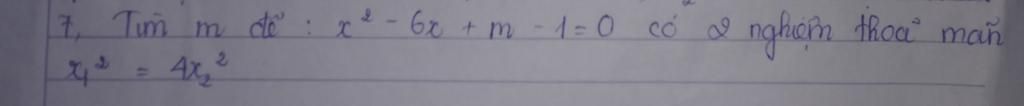 7, Tìm m để : x² - 6x + m - 1 = 0 có 2 nghiệm thoả mãn
x₁² = 4x₂²